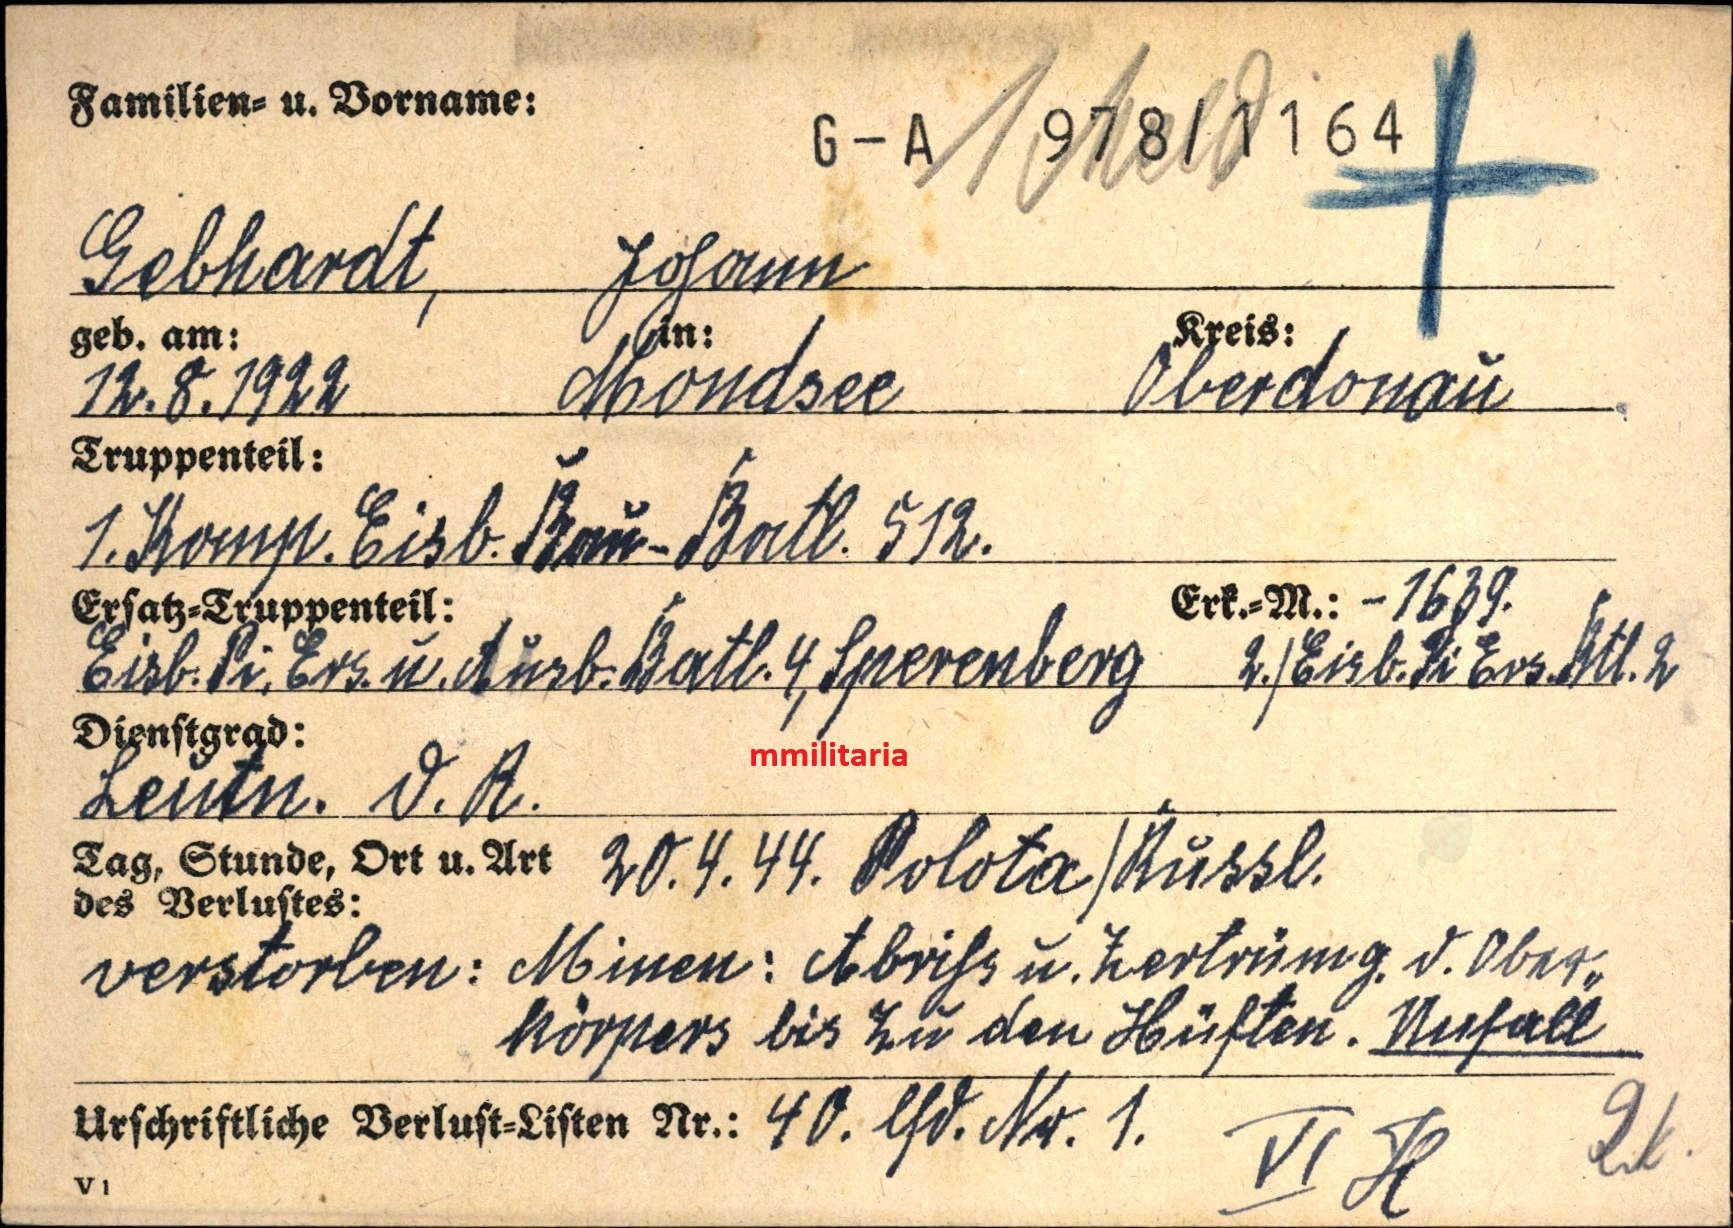 Familien- u. Vorname:
G-A 978/1164
Gebhardt, Johann
geb. am: in: Kreis:
12.8.1922 Mondsee Oberdonau
Truppenteil:
1. Komp. Eisb. Bau-Batl. 512.
Ersatz-Truppenteil: Erk.-M.: -1639.
Eisb. Pi. Ers. u. Ausb. Batl. 4, Sperenberg 2./Eisb. Pi Ers. Btl. 2
Dienstgrad:
mmilitaria
Leutn. d. R.
Tag, Stunde, Ort u. Art 20.4.44. Polota/Russl.
des Verlustes:
verstorben: Minen: Abriss u. Zertrümg. d. Ober-
körpers bis zu den Hüften. Unfall
Urschriftliche Verlust-Listen Nr.: 40. lfd. Nr. 1.
VI H
V 1